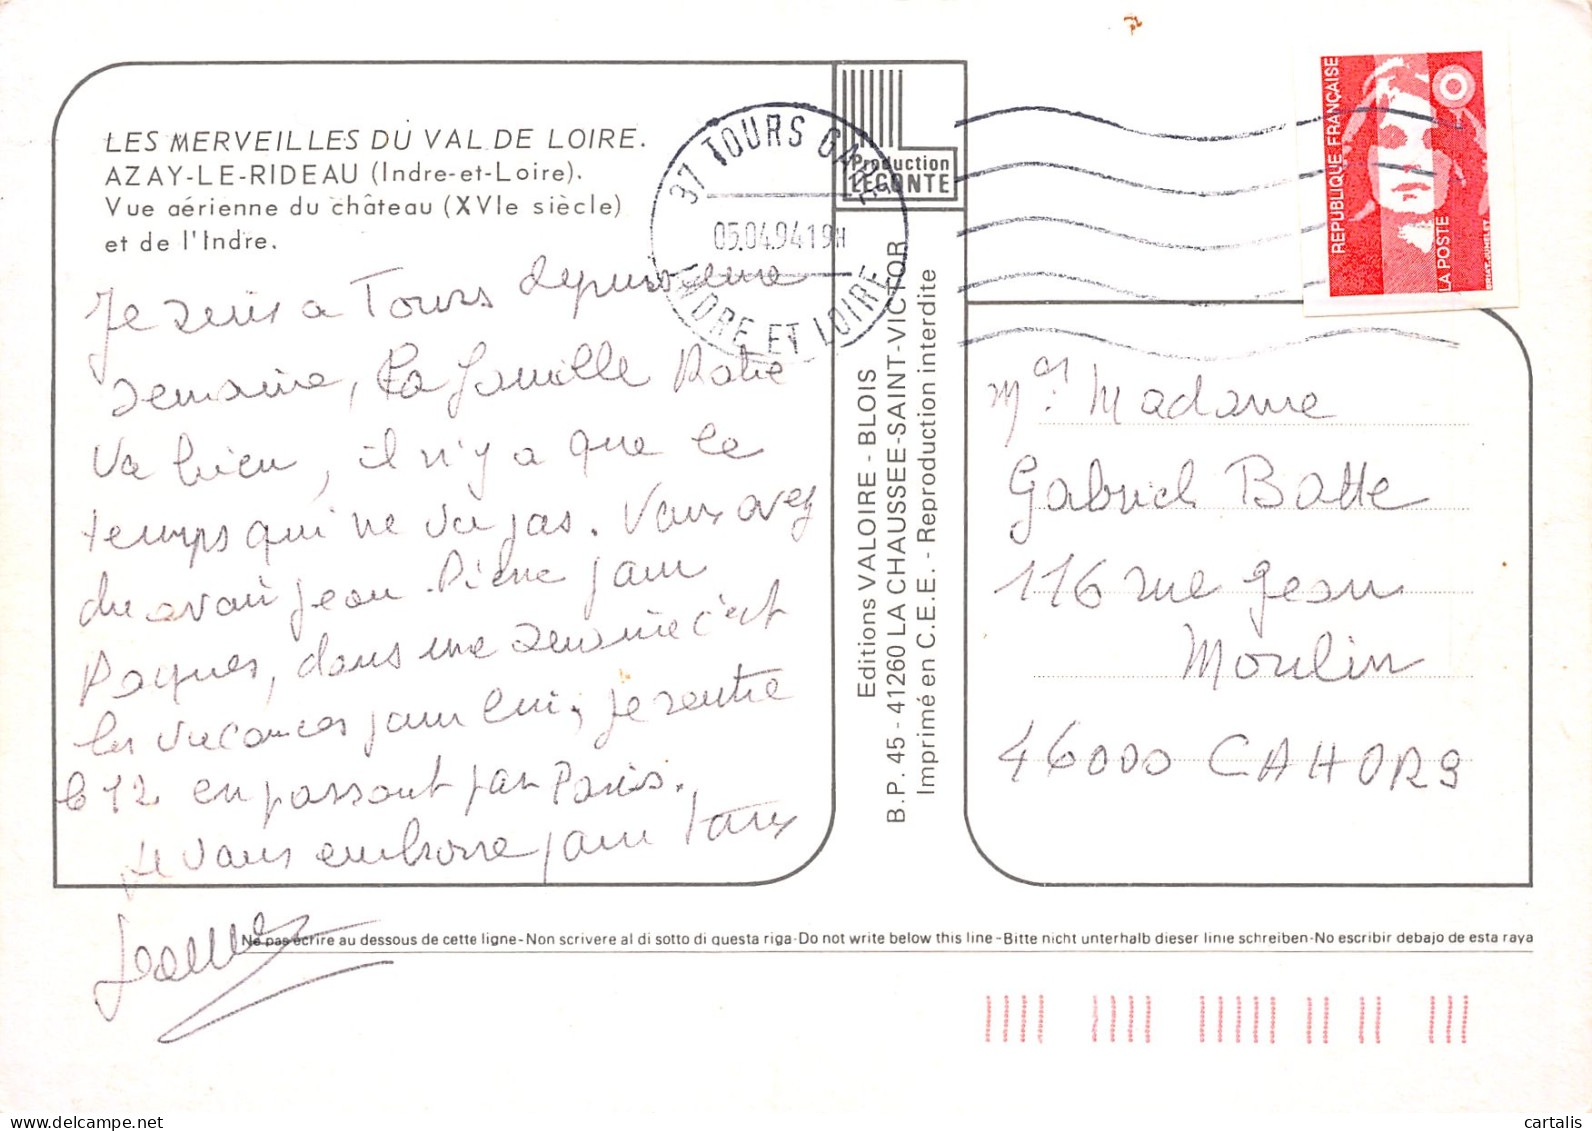 LES MERVEILLES DU VAL DE LOIRE.
AZAY-LE-RIDEAU (Indre-et-Loire).
Vue aérienne du château (XVIe siècle)
et de l'Indre.
Je suis a Tours depuis une
semaine, la famille Ratie
va bien, il n'y a que le
temps qui ne va pas. Vous avez
du avoir Jean-Pierre pour
Paques, dans une semaine c'est
les vacances pour lui, je rentre
le 12 en passant par Paris.
Je vous embrasse pour tous
Production
LECONTE
37 TOURS GARE
05.04.94 19H
INDRE ET LOIRE
Editions VALOIRE - BLOIS
B.P. 45 - 41260 LA CHAUSSEE-SAINT-VICTOR
Imprimé en C.E.E. - Reproduction interdite
REPUBLIQUE FRANÇAISE
LA POSTE
Mr. Madame
Gabriel Batte
116 rue Jean
Moulin
46000 CAHORS
Ne pas écrire au dessous de cette ligne-Non scrivere al di sotto di questa riga-Do not write below this line-Bitte nicht unterhalb dieser linie schreiben-No escribir debajo de esta raya
cartalis